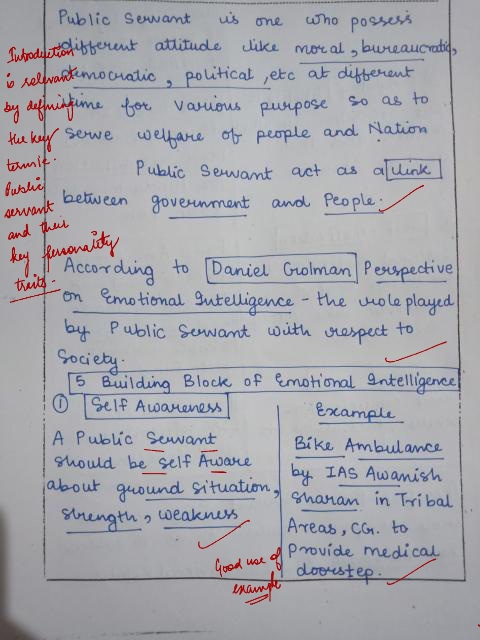 Public Servant is one who possess
different attitude like moral, bureaucratic,
democratic, political, etc at different
time for various purpose so as to
serve welfare of people and Nation
Public Servant act as a link
between government and People.
Introduction
is relevant
by defining
the key
termie.
Public
servant
and their
key personality
traits.
According to Daniel Golman Perspective
on Emotional Intelligence - the role played
by Public Servant with respect to
Society.
5 Building Block of Emotional Intelligence
① Self Awareness
A Public Servant
should be self Aware
about ground situation,
strength, weakness
Example
Bike Ambulance
by IAS Awanish
sharan in Tribal
Areas, CG. to
Provide medical
doorstep.
Good use of
example